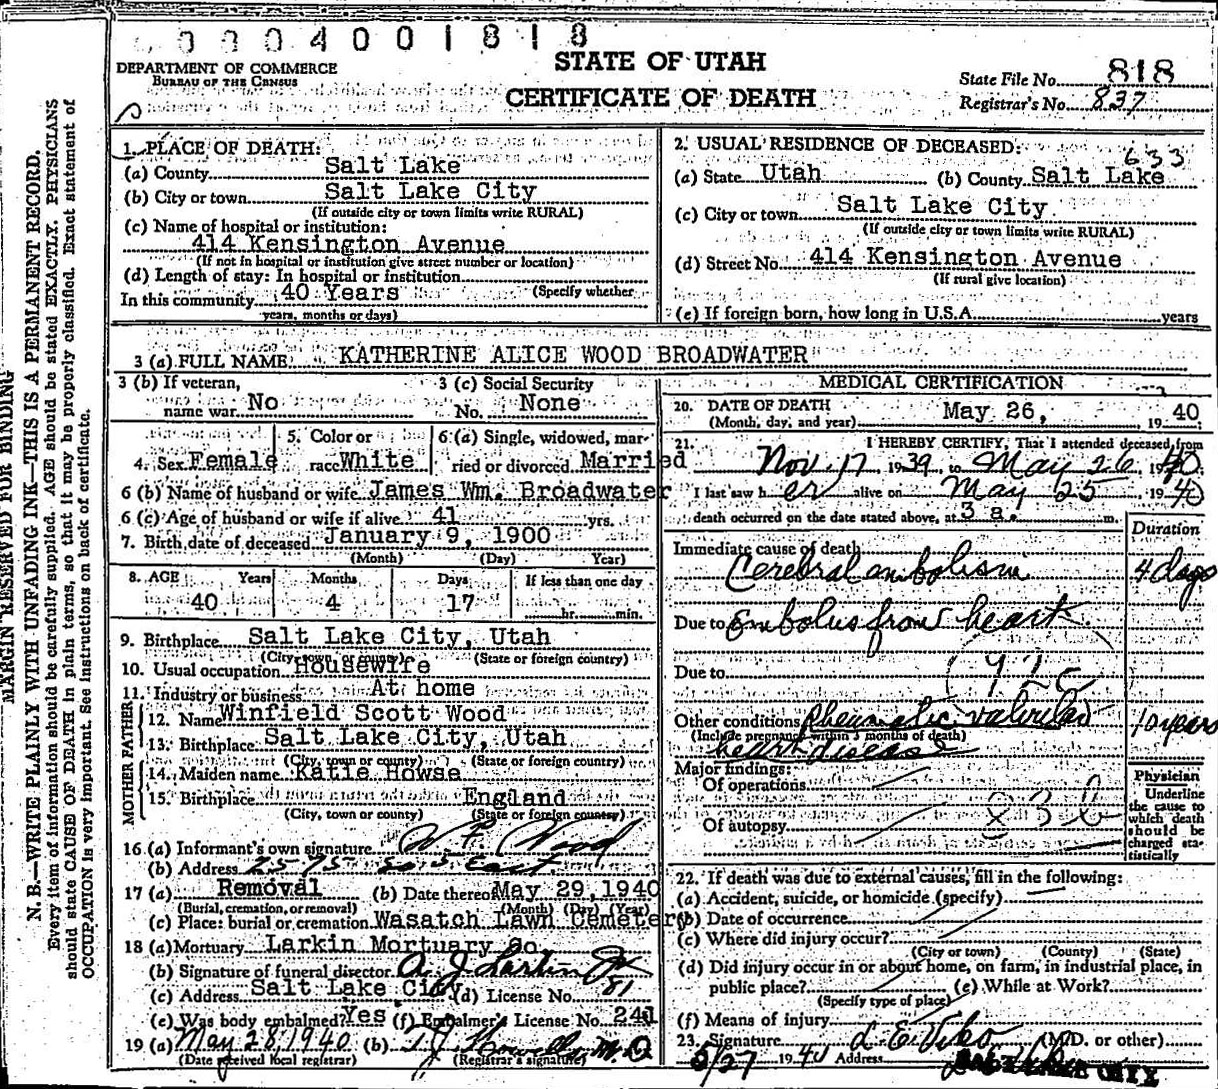 0004001818
DEPARTMENT OF COMMERCE
BUREAU OF THE CENSUS
STATE OF UTAH
CERTIFICATE OF DEATH
State File No. 818
Registrar's No. 837
1. PLACE OF DEATH:
(a) County Salt Lake
(b) City or town Salt Lake City
(If outside city or town limits write RURAL)
(c) Name of hospital or institution:
414 Kensington Avenue
(If not in hospital or institution give street number or location)
(d) Length of stay: In hospital or institution
(Specify whether
In this community 40 Years
years, months or days)
2. USUAL RESIDENCE OF DECEASED:
633
(a) State Utah (b) County Salt Lake
(c) City or town Salt Lake City
(If outside city or town limits write RURAL)
(d) Street No. 414 Kensington Avenue
(If rural give location)
(e) If foreign born, how long in U.S.A. years
3 (a) FULL NAME KATHERINE ALICE WOOD BROADWATER
3 (b) If veteran, name war No
3 (c) Social Security No. None
4. Sex Female
5. Color or race White
6 (a) Single, widowed, married or divorced Married
6 (b) Name of husband or wife James Wm. Broadwater
6 (c) Age of husband or wife if alive 41 yrs.
7. Birth date of deceased January 9, 1900
(Month) (Day) Year)
8. AGE Years Months Days If less than one day
40 4 17 hr. min.
9. Birthplace Salt Lake City, Utah
(City, town, or county) (State or foreign country)
10. Usual occupation Housewife
11. Industry or business At home
FATHER
12. Name Winfield Scott Wood
13. Birthplace Salt Lake City, Utah
(City, town or county) (State or foreign country)
MOTHER
14. Maiden name Katie Howse
15. Birthplace England
(City, town or county) (State or foreign country)
16 (a) Informant's own signature W. F. Wood
(b) Address 2575 So. 5 East
17 (a) Removal (b) Date thereof May 29, 1940
(Burial, cremation, or removal) (Month) (Day) (Year)
(c) Place: burial or cremation Wasatch Lawn Cemetery
18 (a) Mortuary Larkin Mortuary Co.
(b) Signature of funeral director A. J. Larkin
(c) Address Salt Lake City (d) License No. 81
(e) Was body embalmed? Yes (f) Embalmer's License No. 241
19 (a) May 28, 1940 (b) M.D.
(Date received local registrar) (Registrar's signature)
MEDICAL CERTIFICATION
20. DATE OF DEATH May 26, 1940
(Month, day, and year)
21. I HEREBY CERTIFY, That I attended deceased from
Nov. 17 1939 to May 26 1940
I last saw her alive on May 25 1940
death occurred on the date stated above, at 3 a. m.
Duration
Immediate cause of death
Cerebral embolism 4 days
Due to Embolus from heart
Due to 92c
Other conditions Rheumatic valvular 10 years
(Include pregnancy within 3 months of death)
heart disease
Major findings:
Of operations
Of autopsy
83b
Physician
Underline the cause to which death should be charged statistically
22. If death was due to external causes, fill in the following:
(a) Accident, suicide, or homicide (specify)
(b) Date of occurrence
(c) Where did injury occur?
(City or town) (County) (State)
(d) Did injury occur in or about home, on farm, in industrial place, in public place? (e) While at Work?
(Specify type of place)
(f) Means of injury
23. Signature L. E. Viko (M.D. or other)
5/27 1940 Address
MARGIN RESERVED FOR BINDING
N. B.—WRITE PLAINLY WITH UNFADING INK—THIS IS A PERMANENT RECORD.
Every item of information should be carefully supplied. AGE should be stated EXACTLY. PHYSICIANS
should state CAUSE OF DEATH in plain terms, so that it may be properly classified. Exact statement of
OCCUPATION is very important. See instructions on back of certificate.